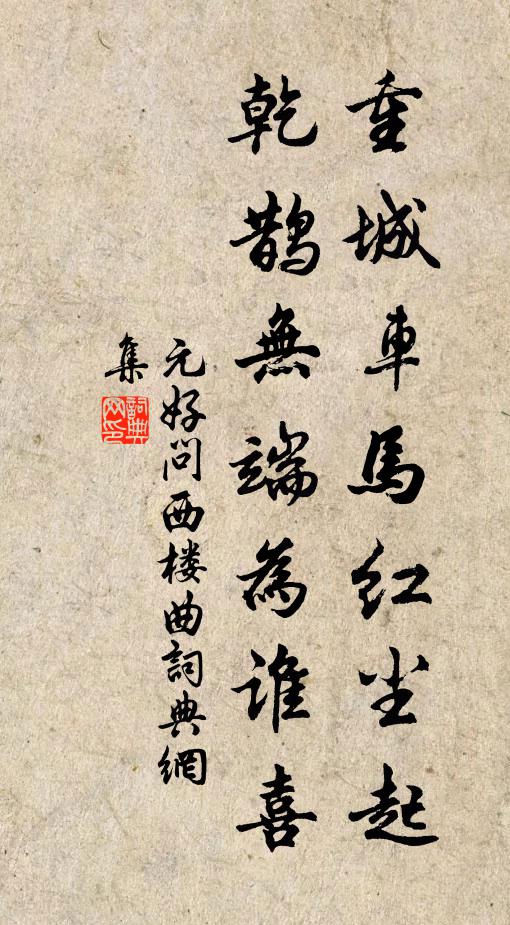 重城車馬红尘起
乾鹊無端為谁喜
元好问西楼曲詞典網
集
詞典
网印